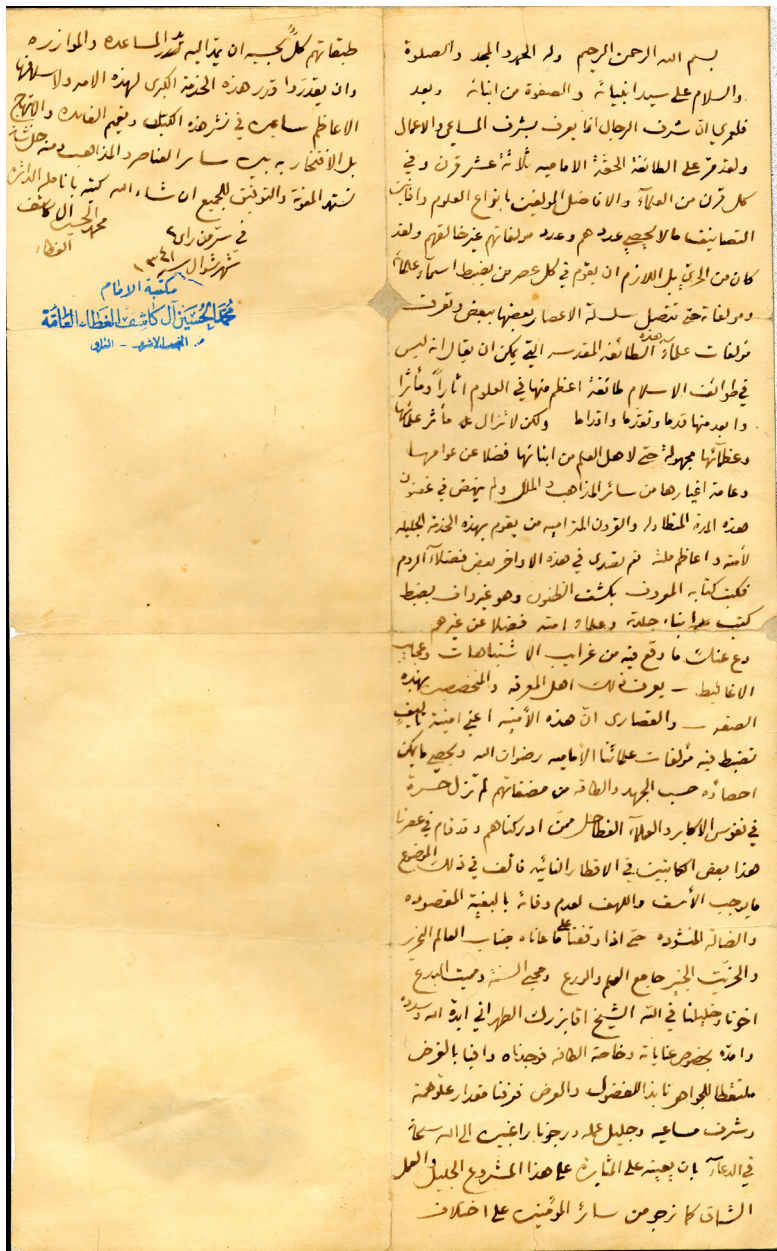 بسم الله الرحمن الرحيم وله الحمد والمجد والصلوة
والسلام على سيد انبيائه والصفوة من ابنائه وبعد
فلعمري ان شرف الرجال انما يعرف بشرف المساعي والاعمال
ولقد مر على الطائفة الحقة الامامية ثلاثة عشر قرن وفي
كل قرن من العلمآء والافاضل المؤلفين بانواع العلوم وافانين
التصانيف ما لا يحصي عددهم وعدد مؤلفاتهم غير خالقهم ولقد
كان من الحري بل اللازم ان يقوم في كل عصر من يضبط اسماء علمائه
ومؤلفاته حتى تتصل سلسلة الاعصار بعضها ببعض وتعرف
مؤلفات علمآء هذه الطائفة المقدسه التي يمكن ان يقال انه ليس
في طوائف الاسلام طائفة اعظم منها في العلوم آثاراً ومآثرا
وابعد منها قدما وتقدما واقداما ولكن لا تزال مآثر علمائها
وعظمآئها مجهولة حتى لاهل العلم من ابنائها فضلا عن عوامها
وعامة اغيارها من سائر المذاهب والملل ولم ينهض في غضون
هذه المدة المتطاوله والقرون المتراميه من يقوم بهذه الخدمة الجليله
لأمته واعاظم ملته نعم تصدى في هذه الاواخر بعض فضلآء الروم
فكتب كتابه المعروف بكشف الظنون وهو غير واف بضبط
كتب ابناء جلدته وعلماء امته فضلا عن غيرهم
دع عنك ما وقع فيه من غرايب الاشتباهات وعجايب
الاغاليط – يعرف ذلك اهل المعرفه والمتخصصين بهذه
الصنعه – والقصارى ان هذه الأمنيه اعني امنية تاليف
تضبط فيه مؤلفات علمائنا الأماميه رضوان الله ويحصي ما يمكن
احصاؤه حسب الجهد والطاقه من مصنفاتهم لم تزل حسرة
في نفوس الاكابر والعلمآء الفطاحل ممن ادركناهم وقد قام في عصرنا
هذا بعض الكاتبين في الاقطار النائيه فألف في ذلك الموضوع
ما يوجب الأسف واللهف لعدم وفائه بالبغية المقصوده
والضالة المنشوده حتى اذا وقفنا على ما عاناه جناب العالم النحرير
والخريت الخبير جامع العلم والورع ومحيي السنة ومميت البدع
اخونا وخليلنا في الله الشيخ اقا بزرك الطهراني ايده الله وسدده
وامده بخصوص عناياته وخاصة الطافه فوجدناه وافيا بالغرض
ملتقطا للجواهر نابذا للفضول والعرض فعرفنا مقدار علو همته
وشرف مساعيه وجليل عمله ورجونا راغبين الى الله سبحانه
في الدعآء بان يعينه على المثابرة على هذا المشروع الجليل والعمل
الشاق كما نرجو من سائر المؤمنين على اختلاف
طبقاتهم كلٌّ بحسبه ان يمد اليه يد المساعده والموازره
وان يقدروا قدر هذه الخدمة الكبرى لهذه الامه ولاسلافها
الاعاظم ساعين في نشر هذه الكتب وتعميم الفايده والابتهاج
بل الافتخار به بين ساير العناصر والمذاهب ومنه جل شأنه
نستمد المعونة والتوفيق للجميع ان شاء الله كتبه بانامله الداثره
محمد الحسين آل كاشف
الغطاء
في سر من رأى
شهر شوال سنه ١٣٤١
مكتبة الامام
محمد الحسين آل كاشف الغطاء العامة
النجف الاشرف - العراق